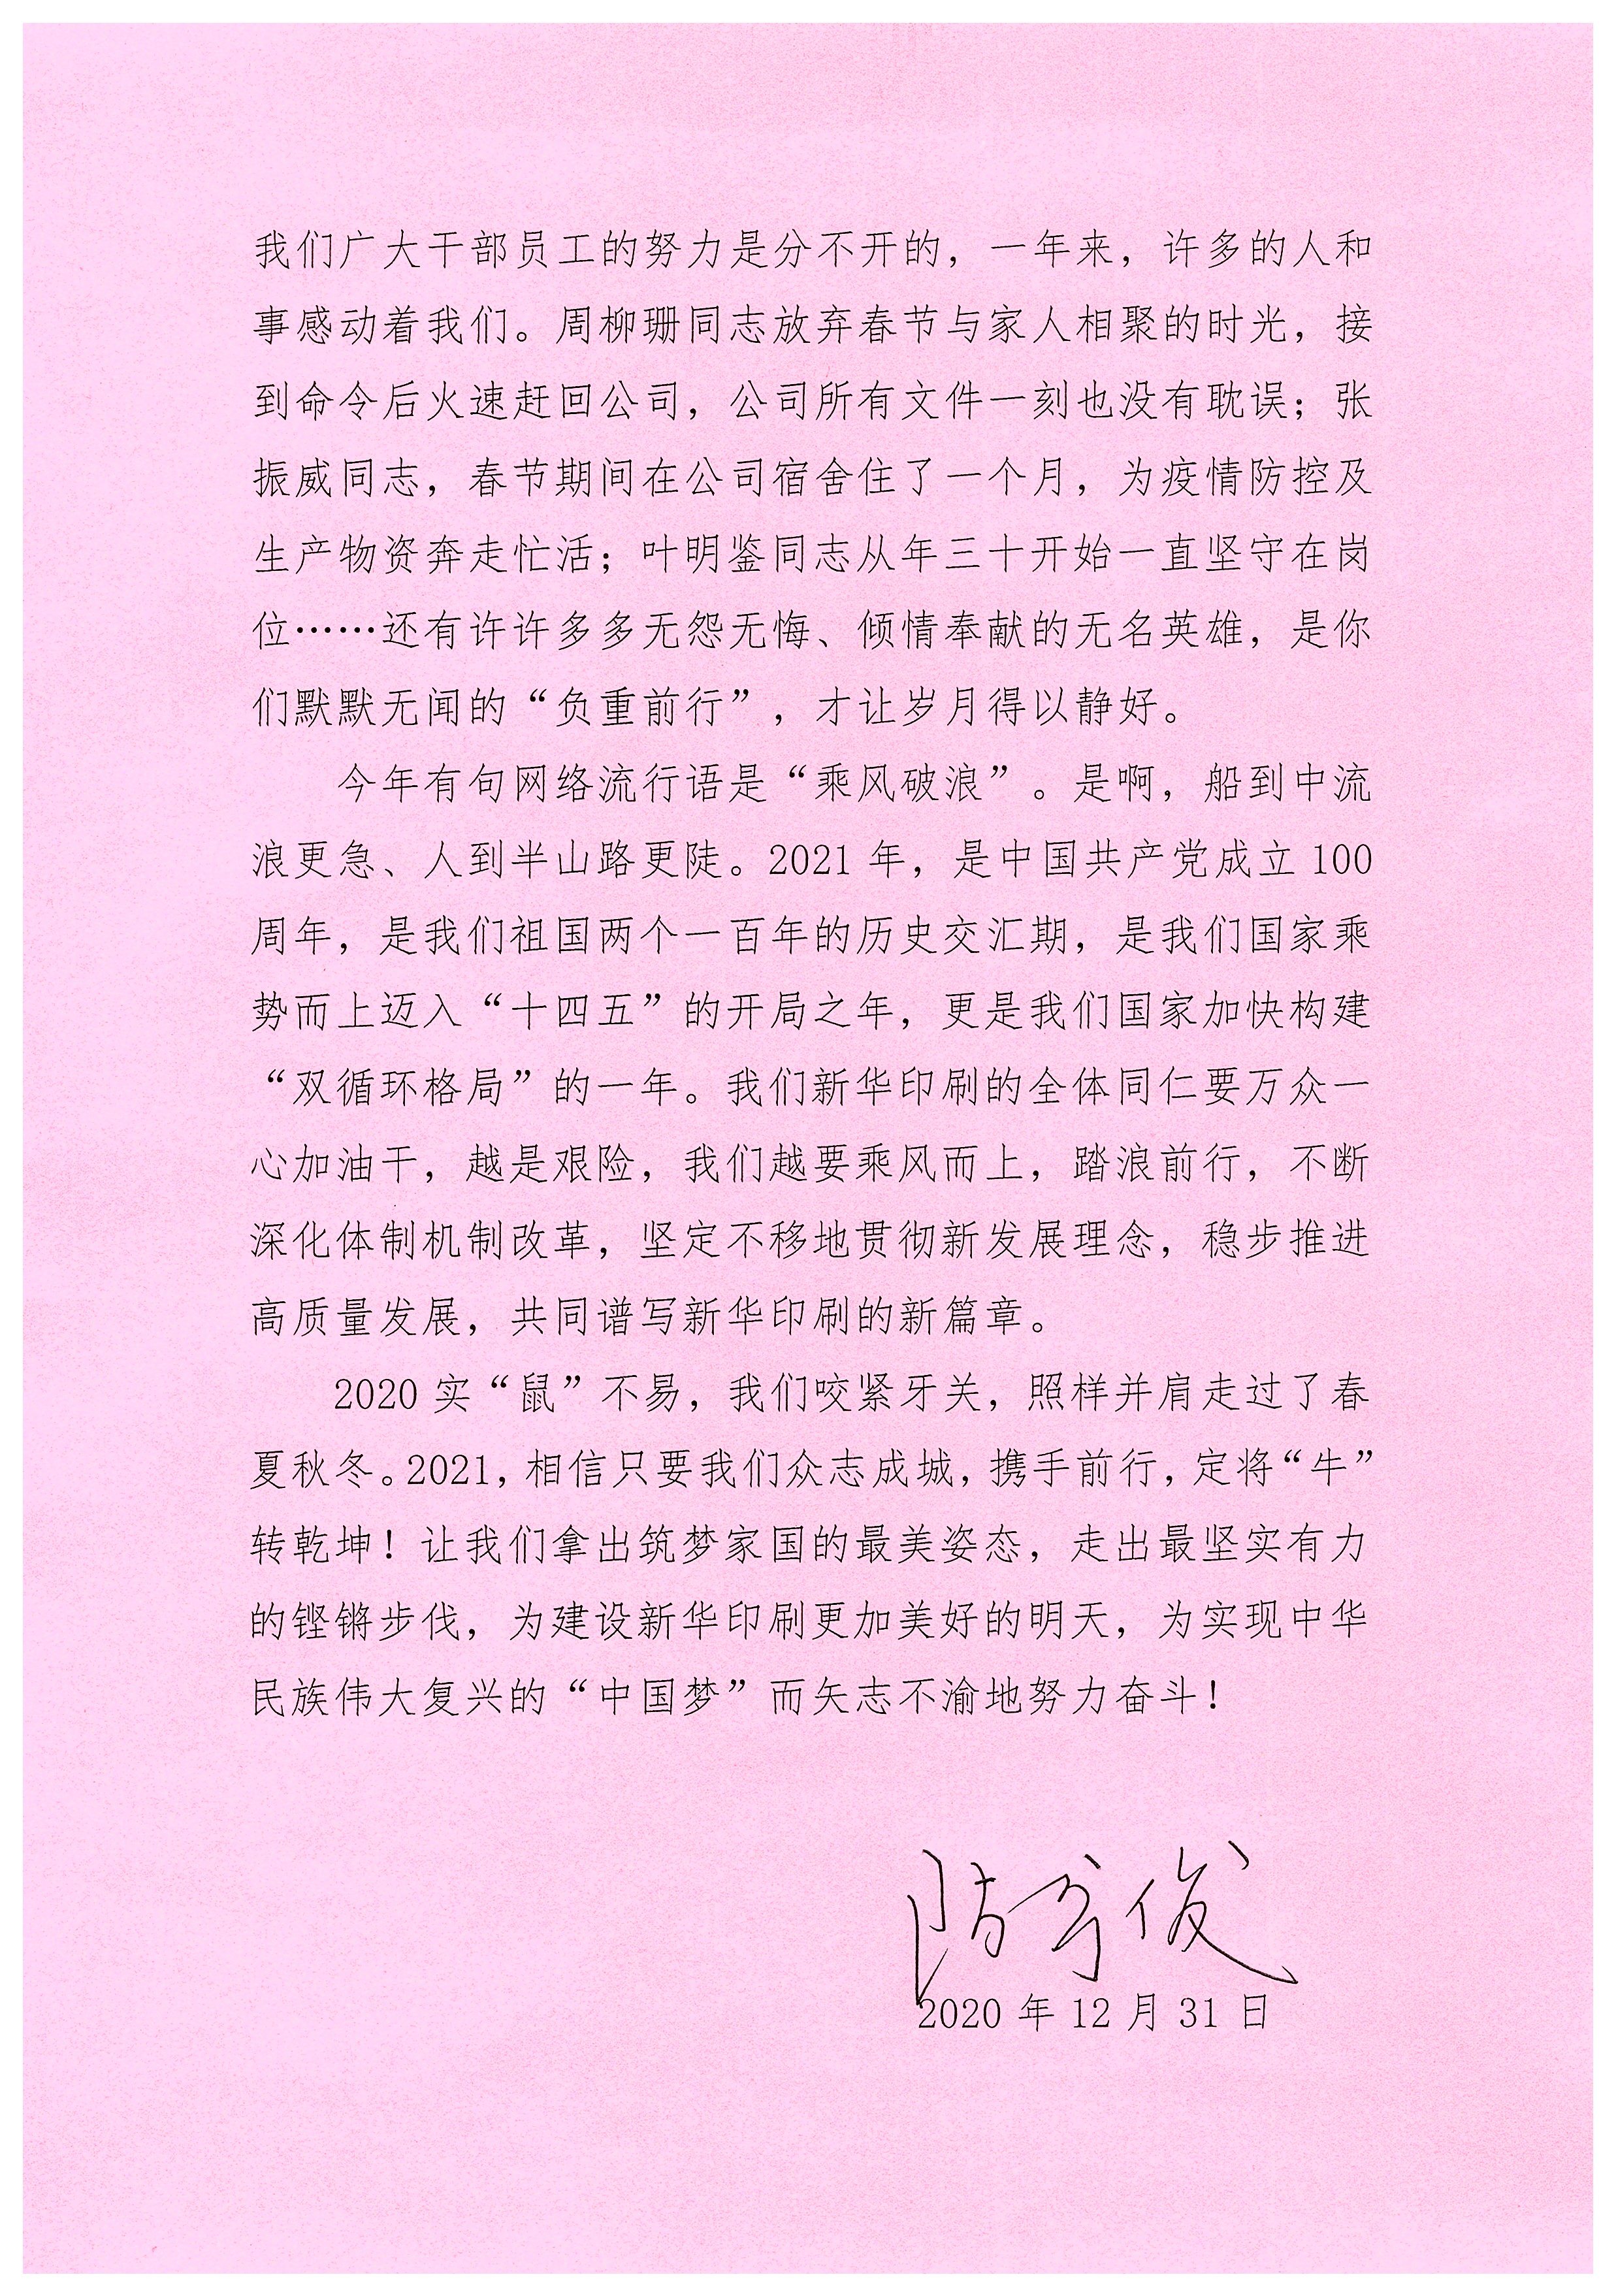 我们广大干部员工的努力是分不开的，一年来，许多的人和
事感动着我们。周柳珊同志放弃春节与家人相聚的时光，接
到命令后火速赶回公司，公司所有文件一刻也没有耽误；张
振威同志，春节期间在公司宿舍住了一个月，为疫情防控及
生产物资奔走忙活；叶明鉴同志从年三十开始一直坚守在岗
位……还有许许多多无怨无悔、倾情奉献的无名英雄，是你
们默默无闻的“负重前行”，才让岁月得以静好。
今年有句网络流行语是“乘风破浪”。是啊，船到中流
浪更急、人到半山路更陡。2021 年，是中国共产党成立 100
周年，是我们祖国两个一百年的历史交汇期，是我们国家乘
势而上迈入“十四五”的开局之年，更是我们国家加快构建
“双循环格局”的一年。我们新华印刷的全体同仁要万众一
心加油干，越是艰险，我们越要乘风而上，踏浪前行，不断
深化体制机制改革，坚定不移地贯彻新发展理念，稳步推进
高质量发展，共同谱写新华印刷的新篇章。
2020 实“鼠”不易，我们咬紧牙关，照样并肩走过了春
夏秋冬。2021，相信只要我们众志成城，携手前行，定将“牛”
转乾坤！让我们拿出筑梦家国的最美姿态，走出最坚实有力
的铿锵步伐，为建设新华印刷更加美好的明天，为实现中华
民族伟大复兴的“中国梦”而矢志不渝地努力奋斗！
2020 年 12 月 31 日